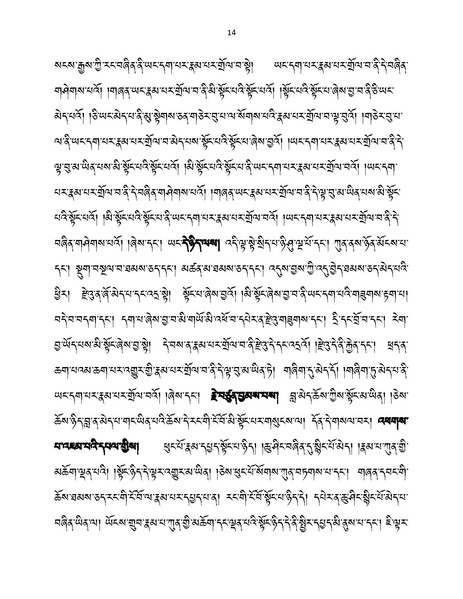 14
སངས་རྒྱས་ཀྱི་རང་བཞིན་ནི་ཡང་དག་པར་རྣམ་པར་གྲོལ་བ་སྟེ། ཡང་དག་པར་རྣམ་པར་གྲོལ་བ་ནི་དེ་བཞིན་
གཤེགས་པའོ། །གཞན་ཡང་རྣམ་པར་གྲོལ་བ་ནི་མི་སྟོང་པའི་སྟོང་པའོ། །སྟོང་པའི་སྟོང་པ་ཞེས་བྱ་བ་ནི་ཅི་ཡང་
མེད་པའོ། །ཅི་ཡང་མེད་པ་ནི་མུ་སྟེགས་ཅན་གཅེར་བུ་པ་ལ་སོགས་པའི་རྣམ་པར་གྲོལ་བ་ལྟ་བུའོ། །གཅེར་བུ་པ་
ལ་ནི་ཡང་དག་པར་རྣམ་པར་གྲོལ་བ་མེད་པས་སྟོང་པའི་སྟོང་པ་ཞེས་བྱའོ། །ཡང་དག་པར་རྣམ་པར་གྲོལ་བ་ནི་དེ་
ལྟ་བུ་མ་ཡིན་པས་མི་སྟོང་པའི་སྟོང་པའོ། །མི་སྟོང་པའི་སྟོང་པ་ནི་ཡང་དག་པར་རྣམ་པར་གྲོལ་བའོ། །ཡང་དག་
པར་རྣམ་པར་གྲོལ་བ་ནི་དེ་བཞིན་གཤེགས་པའོ། །གཞན་ཡང་རྣམ་པར་གྲོལ་བ་ནི་དེ་ལྟ་བུ་མ་ཡིན་པས་མི་སྟོང་
པའི་སྟོང་པའོ། །མི་སྟོང་པའི་སྟོང་པ་ནི་ཡང་དག་པར་རྣམ་པར་གྲོལ་བའོ། །ཡང་དག་པར་རྣམ་པར་གྲོལ་བ་ནི་དེ་
བཞིན་གཤེགས་པའོ། །ཞེས་དང་། ཡང་དེ་ཉིད་ལས། འདི་ལྟ་སྟེ་སྲིད་པ་ཉི་ཤུ་ལྔ་པོ་དང་། ཀུན་ནས་ཉོན་མོངས་པ་
དང་། སྡུག་བསྔལ་བ་ཐམས་ཅད་དང་། མཚན་མ་ཐམས་ཅད་དང་། འདུས་བྱས་ཀྱི་འདུ་བྱེད་ཐམས་ཅད་མེད་པའི་
ཕྱིར། རྫེའུ་ན་ཞོ་མེད་པ་དང་འདྲ་སྟེ། སྟོང་པ་ཞེས་བྱའོ། །མི་སྟོང་ཞེས་བྱ་བ་ནི་ཡང་དག་པའི་གཟུགས་རྟག་པ།
བདེ་བ་བདག་དང་། དག་པ་ཞེས་བྱ་བ་མི་གཡོ་མི་འཕོ་བ་དཔེར་ན་རྫེའུ་གཟུགས་དང་། དྲི་དང་བྲོ་བ་དང་། རེག་
བྱ་ཡོད་པས་མི་སྟོང་ཞེས་བྱ་སྟེ། དེ་བས་ན་རྣམ་པར་གྲོལ་བ་ནི་རྫེའུ་དེ་དང་འདྲའོ། །རྫེའུ་དེ་ནི་རྐྱེན་དང་། ཕྲད་ན་
ཆག་པའམ་ཆག་པར་འགྱུར་གྱི་རྣམ་པར་གྲོལ་བ་ནི་དེ་ལྟ་བུ་མ་ཡིན་ཏེ། གཞིག་ཏུ་མེད་དོ། །གཞིག་ཏུ་མེད་པ་ནི་
ཡང་དག་པར་རྣམ་པར་གྲོལ་བའོ། །ཞེས་དང་། རྗེ་བཙུན་བྱམས་པས། བློ་མེད་ཆོས་ཀྱིས་སྟོང་མ་ཡིན། །ཅེས་
ཆོས་ཉིད་བླ་ན་མེད་པ་གང་ཡིན་པའི་ཆོས་དེ་རང་གི་ངོ་བོ་མི་སྟོང་པར་གསུངས་ལ། དོན་དེ་གསལ་བར། འཕགས་
པ་འཇམ་པའི་དཔལ་གྱིས། ཕུང་པོ་རྣམ་དཔྱད་སྟོང་པ་ཉིད། །ཆུ་ཤིང་བཞིན་དུ་སྙིང་པོ་མེད། །རྣམ་པ་ཀུན་གྱི་
མཆོག་ལྡན་པའི། །སྟོང་ཉིད་དེ་ལྟར་འགྱུར་མ་ཡིན། །ཅེས་ཕུང་པོ་སོགས་ཀུན་བཏགས་པ་དང་། གཞན་དབང་གི་
ཆོས་ཐམས་ཅད་རང་གི་ངོ་བོ་ལ་རྣམ་པར་དཔྱད་པ་ན། རང་གི་ངོ་བོ་སྟོང་པ་ཉིད་དེ། དཔེར་ན་ཆུ་ཤིང་སྙིང་པོ་མེད་པ་
བཞིན་ཡིན་ལ། ཡོངས་གྲུབ་རྣམ་པ་ཀུན་གྱི་མཆོག་དང་ལྡན་པའི་སྟོང་ཉིད་དེ་ནི་སྤྱིར་དཔྱད་མི་ནུས་པ་དང་། ཇི་ལྟར་